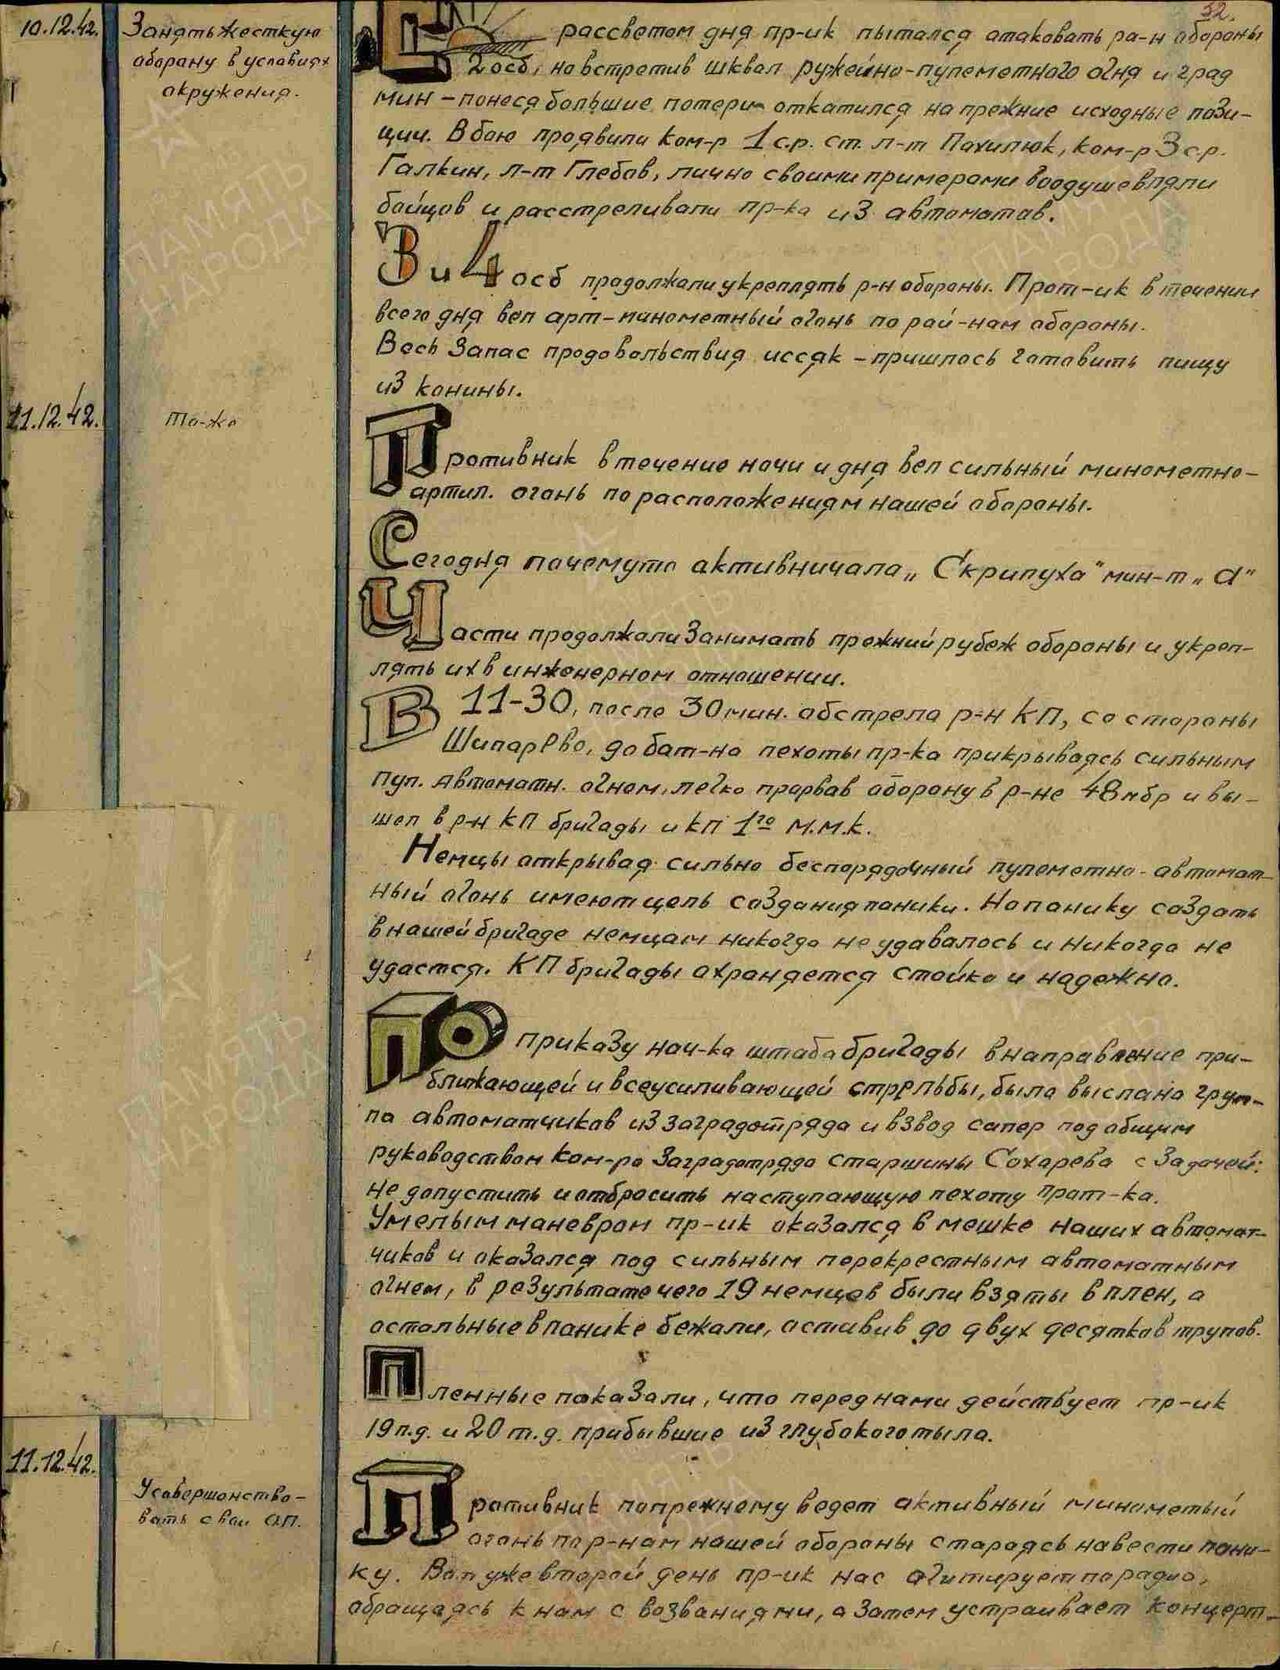 32.
10.12.42. Занять жесткую
оборону в условиях
окружения.
С рассветом дня пр-ик пытался атаковать ра-н обороны
2 осб, но встретив шквал ружейно-пулеметного огня и град
мин – понеся большие потери откатился на прежние исходные пози-
ции. В бою проявили ком-р 1 с.р. ст. л-т Пахилюк, ком-р 3 с.р.
Галкин, л-т Глебов, лично своими примерами воодушевляли
бойцов и расстреливали пр-ка из автоматов.
3 и 4 осб продолжали укреплять р-н обороны. Прот-ик в течении
всего дня вел арт-минометный огонь по рай-нам обороны.
Весь запас продовольствия иссяк – пришлось готовить пищу
из конины.
11.12.42. То-же
Противник в течение ночи и дня вел сильный минометно-
артил. огонь по расположениям нашей обороны.
Сегодня почемуто активничала „Скрипуха" мин-т „d"
Части продолжали занимать прежний рубеж обороны и укреп-
лять их в инженерном отношении.
В 11-30, после 30 мин. обстрела р-н КП, со стороны
Шипарево, до бат-на пехоты пр-ка прикрываясь сильным
пул. автоматн. огнем, легко прорвав оборону в р-не 48 мбр и вы-
шел в р-н КП бригады и КП 1го м.м.к.
Немцы открывая сильно беспорядочный пулеметно-автомат-
ный огонь имеют цель создания паники. Но панику создать
в нашей бригаде немцам никогда не удавалось и никогда не
удастся. КП бригады охраняется стойко и надежно.
По приказу нач-ка штаба бригады в направление при-
ближающей и всеусиливающей стрельбы, была выслана груп-
па автоматчиков из заградотряда и взвод сапер под общим
руководством ком-ра заградотряда старшины Сохарева с задачей:
не допустить и отбросить наступающую пехоту прот-ка.
Умелым маневром пр-ик оказался в мешке наших автомат-
чиков и оказался под сильным перекрестным автоматным
огнем, в результате чего 19 немцев были взяты в плен, а
остальные в панике бежали, оставив до двух десятков трупов.
Пленные показали, что перед нами действует пр-ик
19 п.д. и 20 т.д. прибывшие из глубокого тыла.
11.12.42. Усовершенство-
вать свои ОП.
Противник попрежнему ведет активный минометый
огонь по р-нам нашей обороны стараясь навести пани-
ку. Вот уже второй день пр-ик нас агитирует по радио,
обращаясь к нам с воззваниями, а затем устраивает концерт-
ПАМЯТЬ
НАРОДА